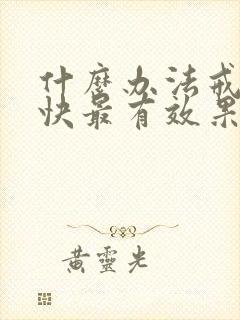 什麼办法戒
快最有效果
黄靈光